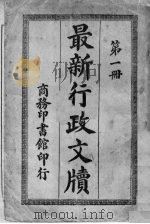 第一冊
最新行政文牘
商務印書館印行